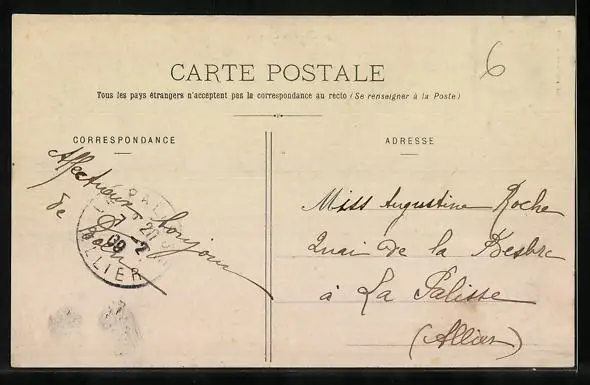 6
CARTE POSTALE
Tous les pays étrangers n'acceptent pas la correspondance au recto (Se renseigner à la Poste)
CORRESPONDANCE
Affectueux bonjour
de
ADRESSE
Miss Augustine Roche
Quai de la Besbre
à La Palisse
(Allier)
ALLIER